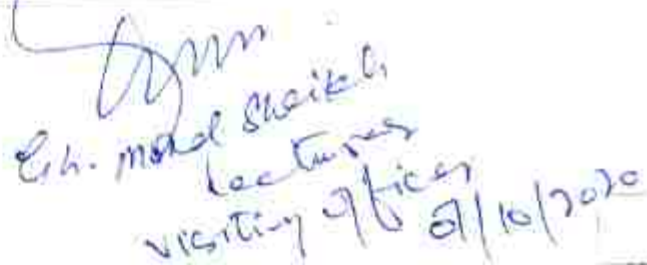 Gh. Mohd Sheikh
Lecturer
visiting officer
01/10/2020